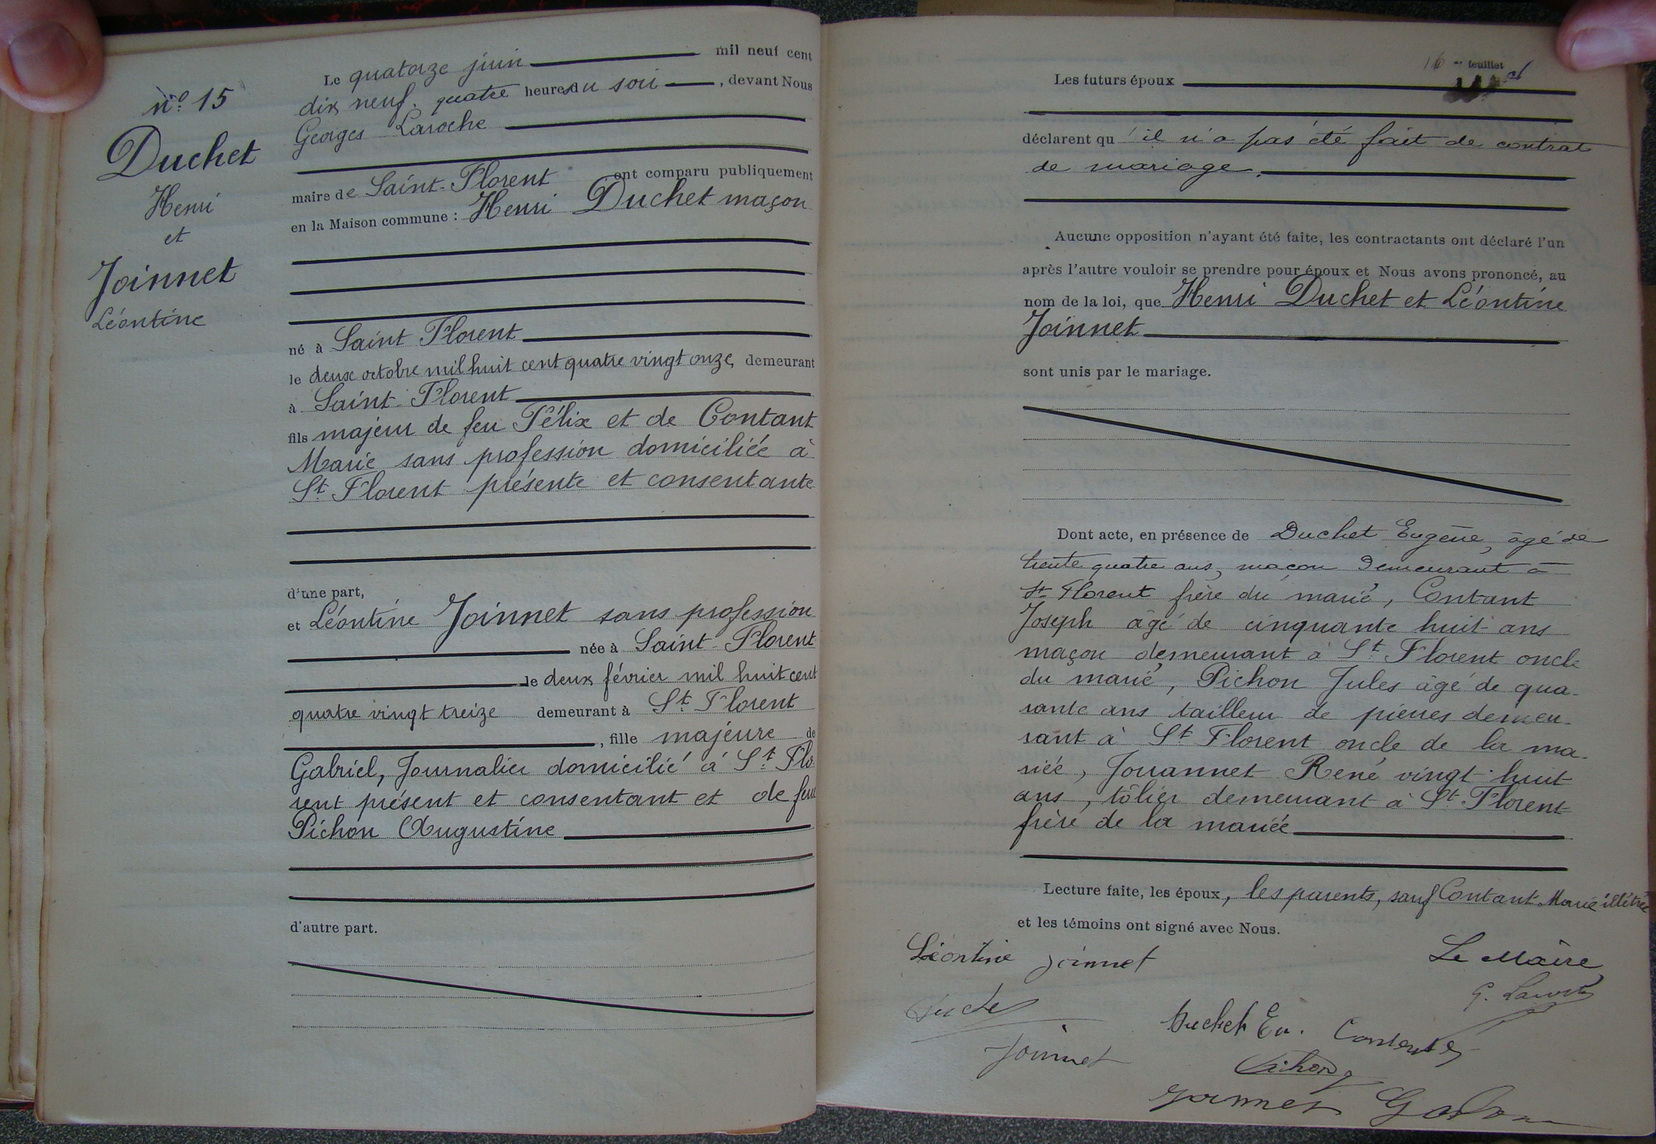 n° 15
Duchet
Henri
et
Joinnet
Léontine
Le quatorze juin mil neuf cent
dix neuf. quatre heures du soir, devant Nous
Georges Laroche
maire de Saint-Florent ont comparu publiquement
en la Maison commune : Henri Duchet maçon
né à Saint Florent
le deux octobre mil huit cent quatre vingt onze, demeurant
à Saint-Florent
fils majeur de feu Félix et de Contant
Marie sans profession domiciliée à
St Florent présente et consentante
d'une part,
et Léontine Joinnet sans profession
née à Saint-Florent
le deux février mil huit cent
quatre vingt treize demeurant à St Florent
, fille majeure de
Gabriel, Journalier domicilié à St Flo-
rent présent et consentant et de feu
Pichon Augustine
d'autre part.
16 me feuillet
Les futurs époux
déclarent qu'il n'a pas été fait de contrat
de mariage.
Aucune opposition n'ayant été faite, les contractants ont déclaré l'un
après l'autre vouloir se prendre pour époux et Nous avons prononcé, au
nom de la loi, que Henri Duchet et Léontine
Joinnet
sont unis par le mariage.
Dont acte, en présence de Duchet Eugène, âgé de
trente quatre ans, maçon demeurant à
St Florent frère du marié, Contant
Joseph âgé de cinquante huit ans
maçon demeurant à St Florent oncle
du marié, Pichon Jules âgé de qua-
rante ans tailleur de pierres demeu-
rant à St Florent oncle de la ma-
riée, Jouannet René vingt-huit
ans, tôlier demeurant à St Florent
frère de la mariée
Lecture faite, les époux, les parents, sauf Contant Marie illétrée
et les témoins ont signé avec Nous.
Léontine Joinnet
Le Maire
G. Laroche
Duchet Eu.
Joinnet
Pichon